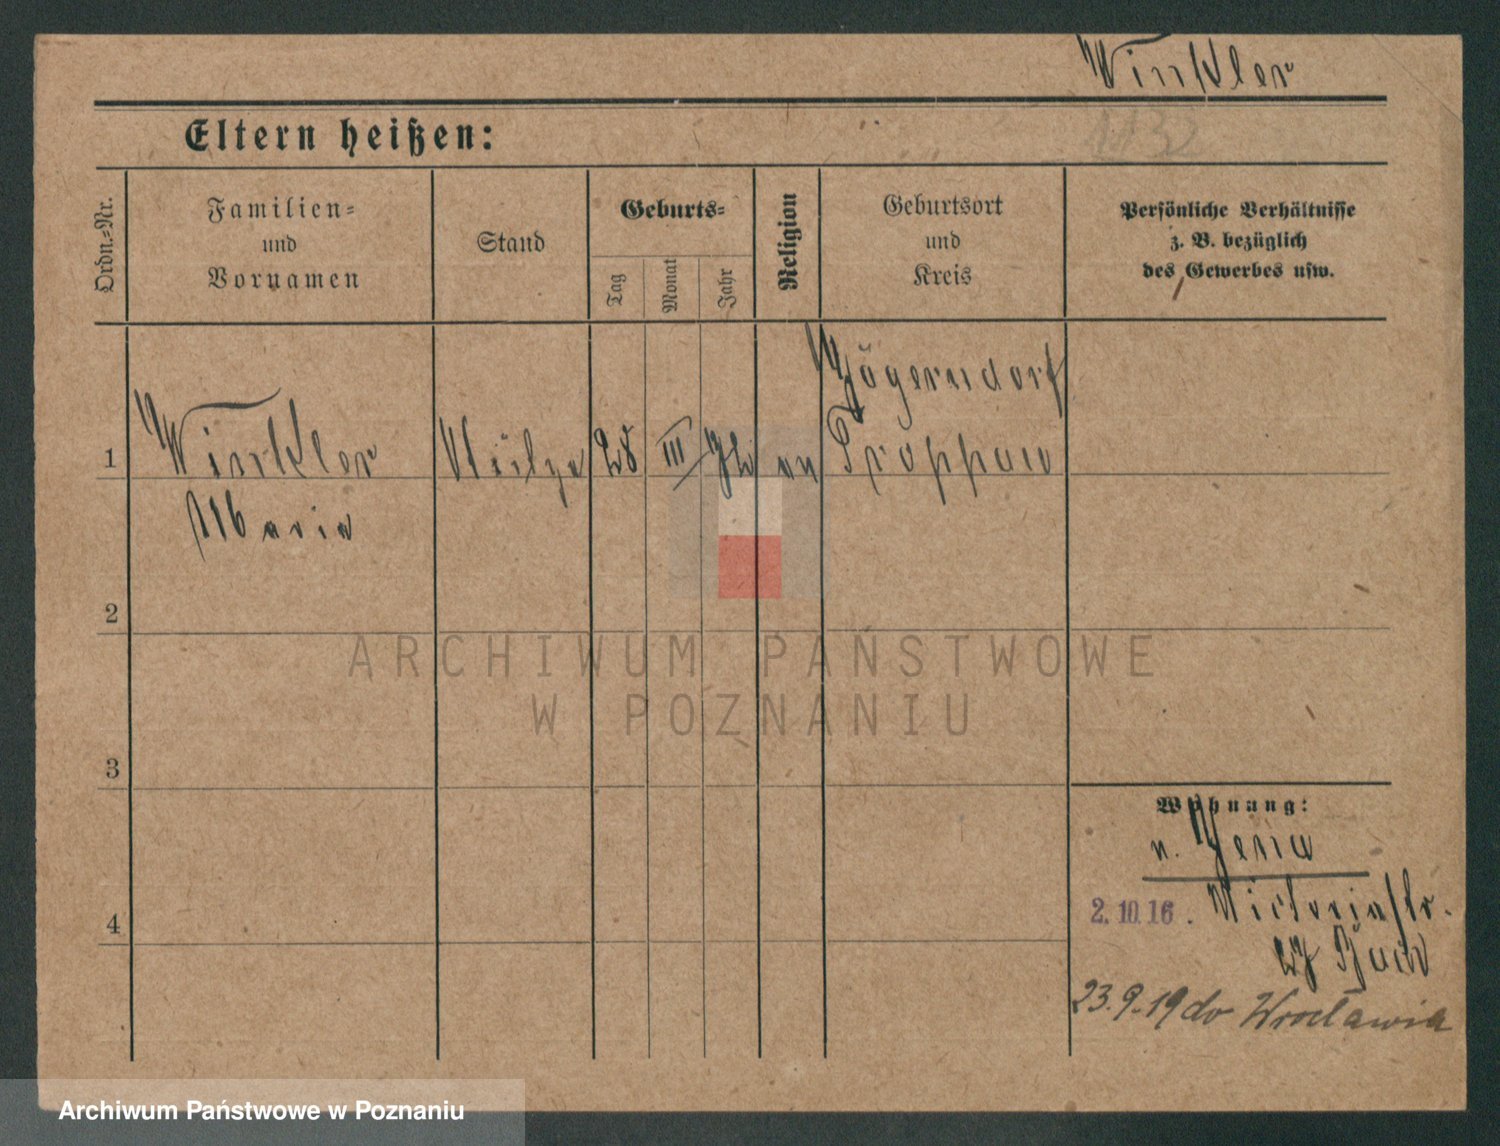 Winkler
1132
Eltern heißen:
Ordn.=Nr.
Familien=
und
Vornamen
Stand
Geburts=
Tag
Monat
Jahr
Religion
Geburtsort
und
Kreis
Persönliche Verhältnisse
z. B. bezüglich
des Gewerbes usw.
Jägerndorf
1 Winkler 28 III ev Troppau
Maria
2
ARCHIWUM PAŃSTWOWE
W POZNANIU
3
Wohnung:
n. Jena
4
2.10.16. Victoriastr.
27
23.9.19 do Wrocławia
Archiwum Państwowe w Poznaniu